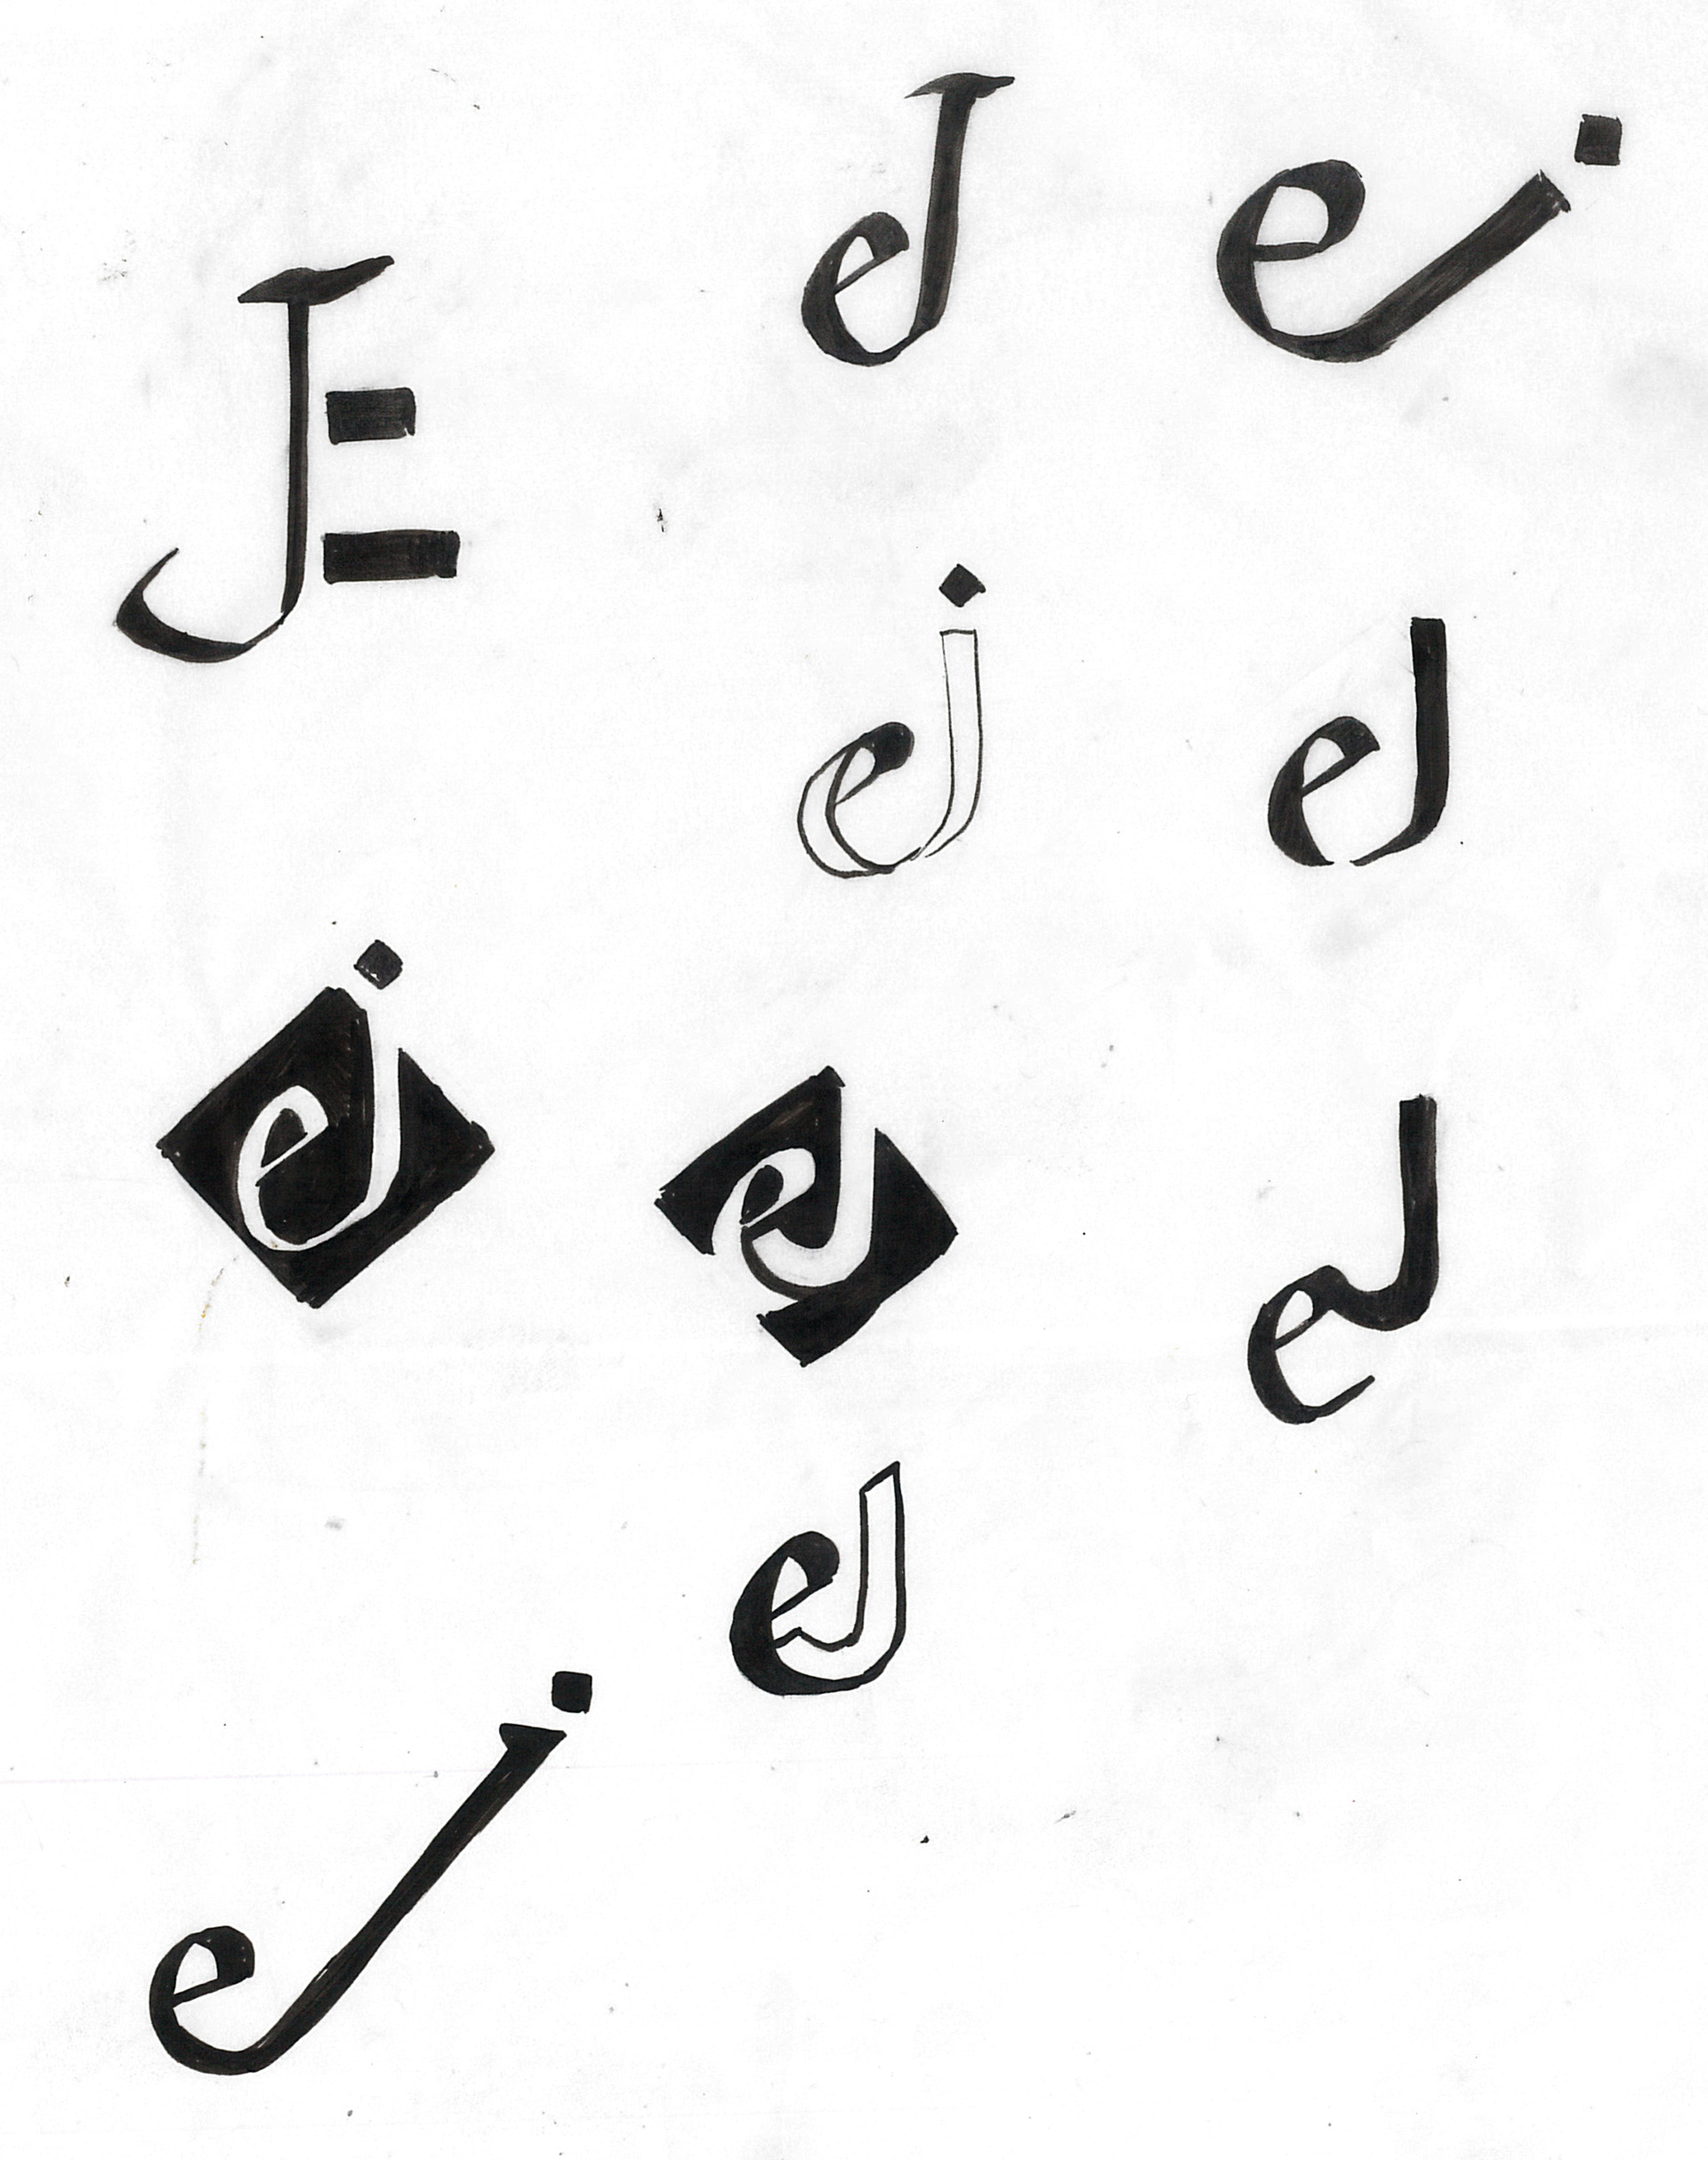 JE
eJ
ej
ej
eJ
ej
eJ
eJ
eJ
ej